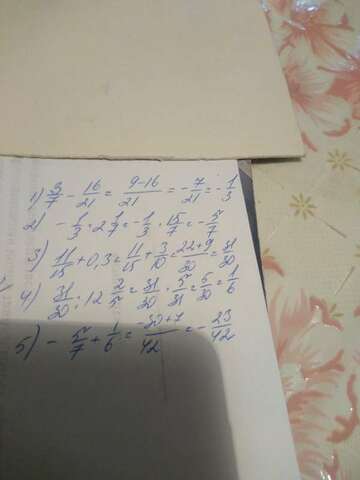 1) 3/7 - 16/21 = 9-16/21 = -7/21 = -1/3
2) -1/3 · 2 1/7 = -1/3 · 15/7 = -5/7
3) 11/15 + 0,3 = 11/15 + 3/10 = 22+9/30 = 31/30
4) 31/30 : 12 2/5 = 31/30 · 5/31 = 5/30 = 1/6
5) -5/7 + 1/6 = -30+7/42 = -23/42